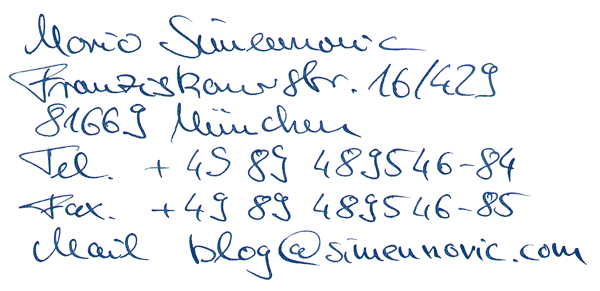 Mario Simeunovic
Franziskanerstr. 16/429
81669 München
Tel. +49 89 489546-84
Fax. +49 89 489546-85
Mail blog@simeunovic.com